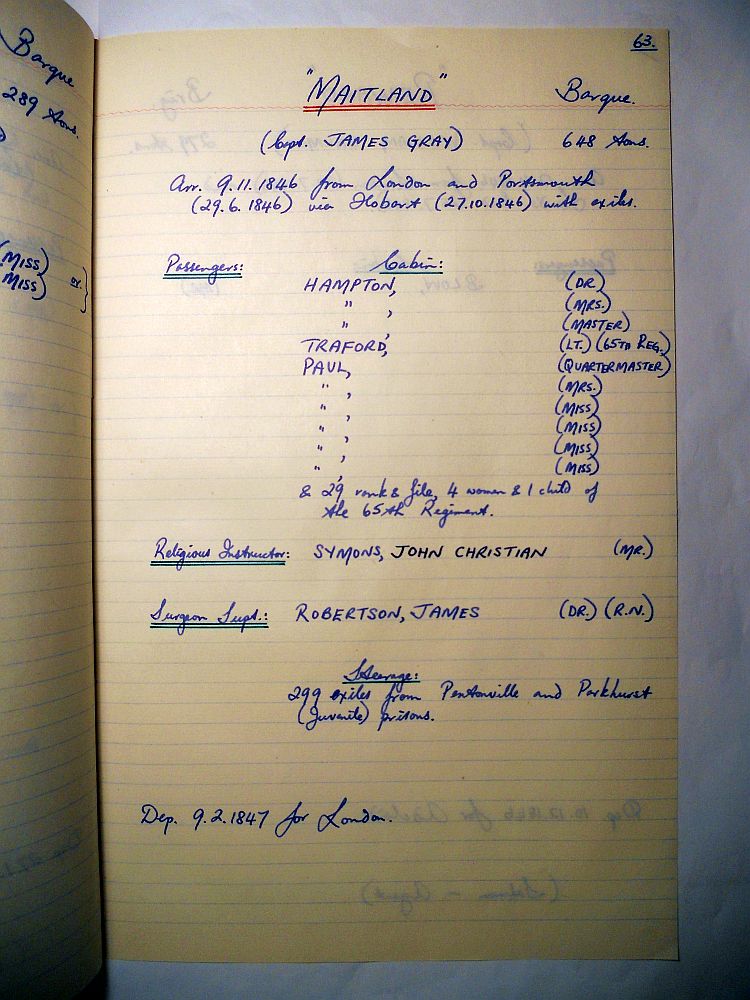 Barque
289 tons.
(MISS)
(MISS) or.}
63.
"MAITLAND" Barque.
(Capt. JAMES GRAY) 648 tons.
Arr. 9.11.1846 from London and Portsmouth
(29.6.1846) via Hobart (27.10.1846) with exiles.
Passengers: Cabin:
HAMPTON, (DR.)
" , (MRS.)
" , (MASTER)
TRAFORD, (LT.) (65TH REG.)
PAUL, (QUARTERMASTER)
" , (MRS.)
" , (MISS)
" , (MISS)
" , (MISS)
" , (MISS)
& 29 rank & file, 4 women & 1 child of
the 65th Regiment.
Religious Instructor: SYMONS, JOHN CHRISTIAN (MR.)
Surgeon Supt.: ROBERTSON, JAMES (DR.) (R.N.)
Steerage:
299 exiles from Pentonville and Parkhurst
(Juvenile) prisons.
Dep. 9.2.1847 for London.